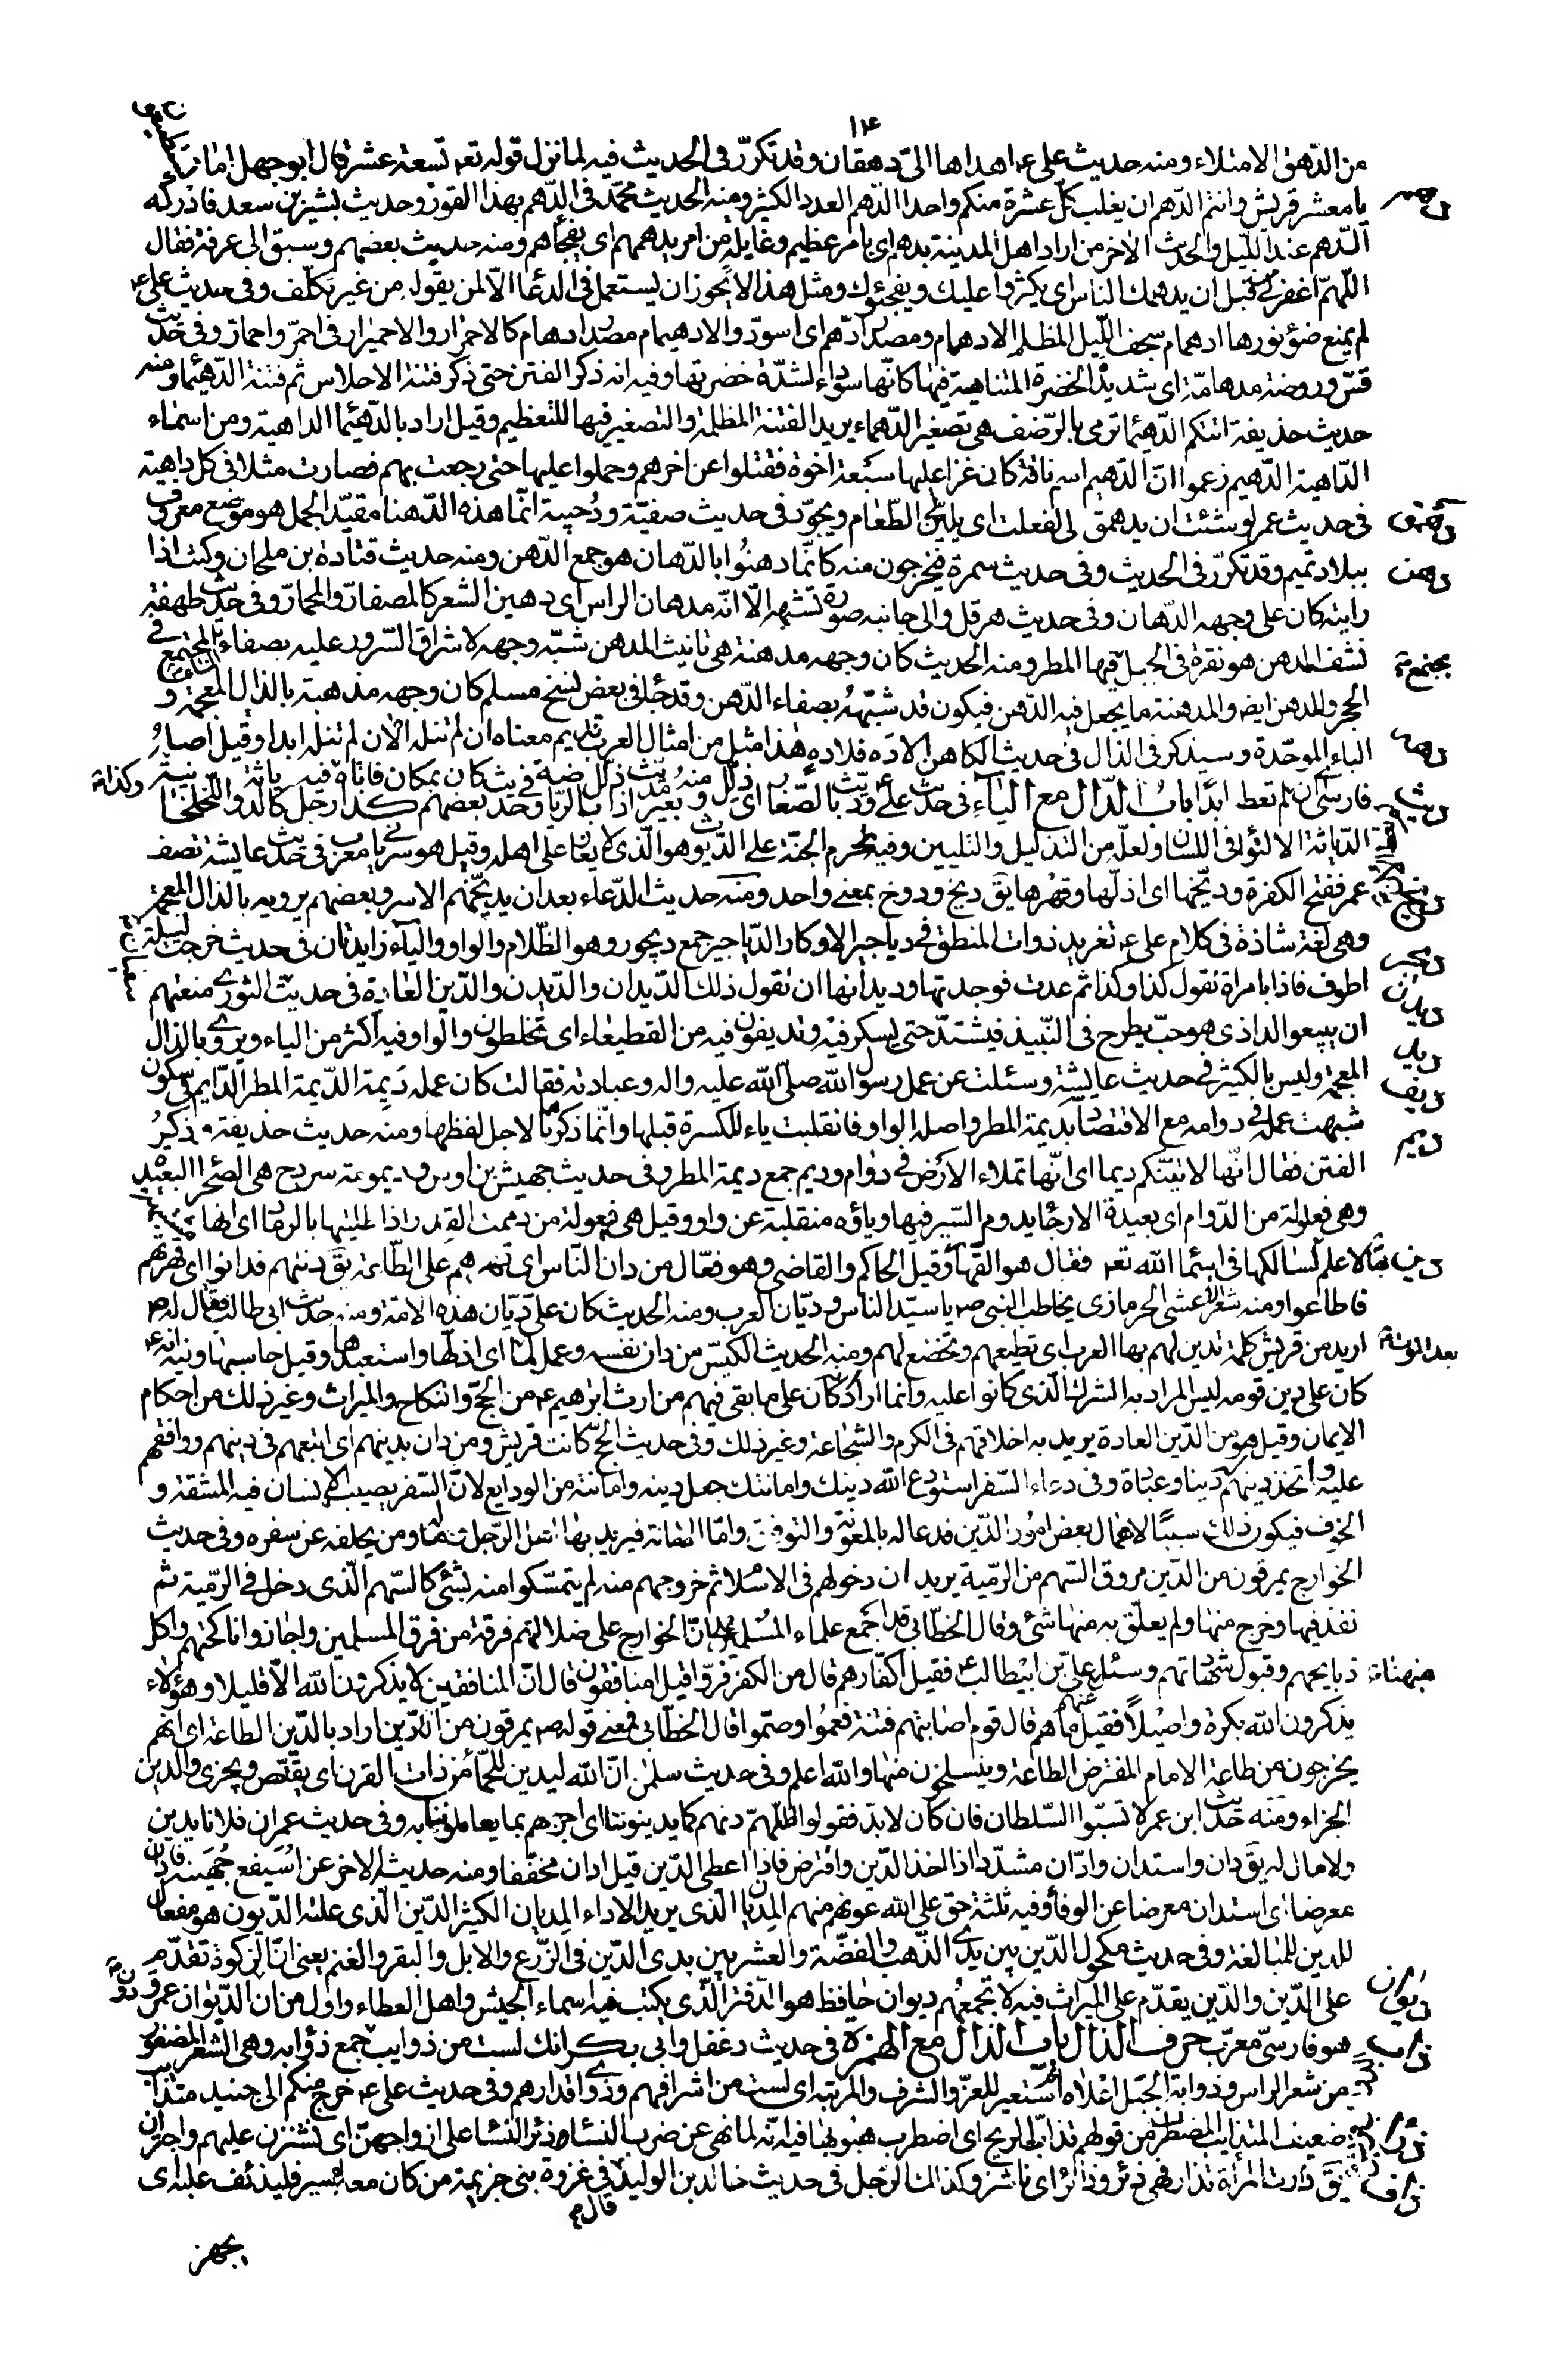 ١٤
من الدّهق الامتلاء ومنه حديث على ع اهداها الىّ دهقان وقد تكرّر فى الحديث فيه لما نزل قوله تعه تسعة عشر قال ابو جهل اما
دهم
يا معشر قريش وانتم الدّهم ان يغلب كلّ عشرة منكم واحدا الدّهم العدد الكثير ومنه الحديث محمّد فى الدّهم بهذا القوز وحديث بشير بن سعد فادركه
الدّهم عند الليل والحديث الاخر من اراد اهل المدينة بدهم اى بامر عظيم وغايلة من امر يدهمهم اى يفجأهم ومنه حديث بعضهم وسبق الى عرفة فقال
اللهمّ اغفر لى قبل ان يدهمك الناس اى يكثروا عليك ويفجئوك ومثل هذا لا يجوز ان يستعمل فى الدعاء الّا لمن يقوله من غير تكلّف وفى حديث على ع
لم يمنع ضوء نورها ادهمام سجف اللّيل المظلم الادهمام ومصدر ادهم اى اسودّ والادهيمام مصدر ادهام كالاحمرار والاحميرار فى احمرّ واحمارّ وفى حديث
قسّ وروضة مدهامّة اى شديدة الخضرة المتناهية فيها كانّها سوداء لشدّة خضرتها وفيه انه ذكر الفتن حتى ذكر فتنة الاحلاس ثم فتنة الدّهيماء ومنه
حديث حذيفة اتتكم الدّهيماء ترمى بالرّضف هى تصغير الدّهماء يريد الفتنة المظلمة والتصغير فيها للتعظيم وقيل اراد بالدّهيماء الداهية ومن اسماء
الدّاهية الدّهيم زعموا انّ الدّهيم اسم ناقة كان غزا عليها سبعة اخوة فقتلوا عن اخرهم وحملوا عليها حتى رجعت بهم فصارت مثلا فى كل داهية
دهمق
فى حديث عمر لو شئت ان يدهمق لى لفعلت اى يلين لى الطّعام ويجوّد فى حديث صفيّة ودُحيبة انّما هذه الدّهنا مقيّد الجمل هو موضع معروف
دهن
ببلاد تميم وقد تكرّر فى الحديث وفى حديث سمرة فيخرجون منه كانّما دهنوا بالدّهان هو جمع الدّهن ومنه حديث قتادة بن ملحان وكنت اذا
رايته كان على وجهه الدّهان وفى حديث هرقل والى جانبه صورة تشبهه الّا انّه مدهان الراس اى دهين الشعر كالمصفارّ والمحمارّ وفى حديث طهفة
نشف المدهن هو نقرة فى الجبل فيها المطر ومنه الحديث كان وجهه مدهنة هى تانيث المدهن شبّه وجهه لاشراق السّرور عليه بصفاء الماء المجتمع فى
الحجر والمدهن ايضه والمدهنة ما يجعل فيه الدّهن فيكون قد شبّهه بصفاء الدّهن وقد جاء فى بعض نسخ مسلم كان وجهه مذهبة بالذال المعجمة و
دهه
الباء الموحّدة وسيذكر فى الذال فى حديث الكاهن الا دَه فلا دهٍ هذا مثل من امثال العرب قديم معناه ان لم تنله الآن لم تنله ابدا وقيل اصله
ديث
فارسى اى ان لم تعط ابدًا باب الدّال مع الياء فى حديث على ع وديّث بالصّغار اى ذلّل ومنه بعير مديّث
الدّياثة الالتواء فى اللسان ولعلّه من التذليل والتليين وفيه تحرم الجنّة على الدّيوث هو الّذى لا يغار على اهله وقيل هو سريانى معرّب فى حديث عايشة تصف
ديخ
عمر ففتح الكفرة وديّخها اى اذلّها وقهرها يق ديخ ودوخ بمعنى واحد ومنه حديث الدّعاء بعد ان يديّخهم الاسر وبعضهم يرويه بالذال المعجمة
ديجر
وهى لغة شاذة فى كلام على ع تغريد ذوات المنطق فى دياجير الاوكار الدّياجير جمع ديجور وهو الظّلام والواو والياء زايدتان فى حديث خرجت ليلة
ديدن
اطوف فاذا بامراة تقول كذا وكذا ثم عدت فوجدتها وديدانها ان تقول ذلك الدّيدان والدّيدن والدّين العادة فى حديث الثورى منعتهم
ديذ
ان يبيعوا الداذى هو حبّ يطرح فى النّبيذ فيشتدّ حتى يسكر فيه وتديفون فيه من القطيعاء اى تخلطون والواو فيه اكثر من الياء ويروى بالذال
ديف
المعجمة وليس بالكثير فى حديث عايشة وسئلت عن عمل رسول الله صلى الله عليه واله وعبادته فقالت كان عمله دَيِمة الدّيمة المطر الدّايم فى سكون
ديم
شبهت عمله فى دوامه مع الاقتصاد بديمة المطر واصله الواو فانقلبت ياء للكسرة قبلها وانّما ذكرناها لاجل لفظها ومنه حديث حذيفة وذكر
الفتن فقال انّها لاتيتكم ديما اى انّها تملاء الارض فى دوام وديم جمع ديمة المطر وفى حديث جهيش بن اوس وديمومة سردح هى الصّحراء البعيدة
وهى فعلولة من الدّوام اى بعيدة الارجاء يدوم السّير فيها وياؤه منقلبة عن واو وقيل هى فيعولة من دممت القدر اذا طليتها بالرماد اى انها
دين
فى اسماء الله تعه فقال هو القهّار وقيل الحاكم والقاضى وهو فعّال من دان النّاس اى قهرهم على الطّاعة يق دنتهم فدانوا اى قهرتهم
فاطاعوا ومنه شعر الاعشى الحرمازى يخاطب النبى ص يا سيّد الناس وديّان العرب ومنه الحديث كان علىّ ديّان هذه الامّة ومنه حديث ابى طالب قال له ص
اريد من قريش كلمة تدين لهم بها العرب اى تطيعهم وتخضع لهم ومنه الحديث الكيّس من دان نفسه وعمل لما اى اذلّها واستعبدها وقيل حاسبها وفيه انه ع
كان على دين قومه ليس المراد به الشرك الّذى كانوا عليه وانما اراد كان على ما بقى فيهم من ارث ابرهيم ع من الحجّ والنكاح والميراث وغير ذلك من احكام
الايمان وقيل هو من الدّين العادة يريد به اخلاقهم فى الكرم والشّجاعة وغير ذلك وفى حديث الحج كانت قريش ومن دان بدينهم اى اتبعهم فى دينهم ووافقهم
عليه واتخذ دينهم دينا وعبادة وفى دعاء السّفر استودع الله دينك وامانتك جعل دينه وامانته من الودايع لانّ السّفر يصيب الانسان فيه المشقة و
الخوف فيكون ذلك سببًا لاهمال بعض امور الدّين فدعا له بالمعونة والتوفيق وامّا الامانة فيريد بها اهل الرّجل وماله ومن يخلفه عن سفره وفى حديث
الخوارج يمرقون من الدّين مروق السّهم من الرّمية يريد ان دخولهم فى الاسلام ثم خروجهم منه لم يتمسّكوا منه بشئ كالسّهم الّذى دخل فى الرّمية ثم
نفذ فيها وخرج منها ولم يعلّق به منها شئ وقال الخطّابى قد اجمع علماء المسلمين على انّ الخوارج على ضلالتهم فرقة من فرق المسلمين واجازوا مناكحتهم واكل
ذبايحهم وقبول شهاداتهم وسئل عنهم علىّ بن ابيطالب ع فقيل اكفّارهم قال من الكفر فرّوا قيل افمنافقون قال انّ المنافقين لا يذكرون الله الّا قليلا وهؤلاء
يذكرون الله بكرة واصيلاً فقيل ما هم قال قوم اصابتهم فتنة فعموا وصمّوا قال الخطّابى فمعنى قوله ص يمرقون من الدّين اراد بالدّين الطاعة اى انّهم
يخرجون من طاعة الامام المفترض الطاعة وينسلخون منها والله اعلم وفى حديث سلمن انّ الله ليدين للجمّاء من ذات القرن اى يقتصّ ويجزى والدين
الجزاء ومنه حديث ابن عمر لا تسبّوا السّلطان فان كان لا بدّ فقولوا اللّهمّ دنهم كما يدينوننا اى اجزهم بما يعاملونا به وفى حديث عمران فلانا يدين
ولا مال له يق دان واستدان وادّان مشدّدا اذا اخذ الدّين واقترض فاذا اعطى الدّين قيل ادان مخفّفا ومنه حديثه الاخر عن اسيفع جهينة فادّان
معرضا اى استدان معرضا عن الوفاء وفيه ثلثة حق على الله عونهم منهم المديان الّذى يريد الاداء المديان الكثير الدّين الّذى علته الدّيون هو مفعال
للدين للمبالغة وفى حديث مكحول الدّين بين يدى الذّهب والفضّة والعشر بين يدى الدّين فى الزّرع والابل والبقر والغنم يعنى انّ الزكوة تقدّم
ديوان
على الدّين والدّين يقدّم على الميراث فيه لا تجمعهم ديوان حافظ هو الدّفتر الّذى يكتب فيه اسماء الجيش واهل العطاء واول من دوّن الدّيوان عمر
ذاب
هو فارسىّ معرّب حرف الذال باب الذال مع الهمزة فى حديث دغفل وابى بكر انك لست من ذوايب جمع ذؤابه وهى الشعر المضفور
من شعر الراس وذوابة الجبل اعلاه ثم استعير للعزّ والشرف والمرتبة اى لست من اشرافهم وذوى اقدارهم وفى حديث على ع خرج منكم الىّ جنيد متذائب
ذئر
ضعيف المتذايب المضطرب من قولهم تذائب الريح اى اضطرب هبوبها فيه انّه لما نهى عن ضرب النساء ذئر النساء على ازواجهنّ اى نشزن عليهم واجترأن
ذاف
يق ذارت المراة تذار فهى ذئر وذائر اى ناشز وكذلك الرّجل فى حديث خالد بن الوليد فى غزوة بنى جزيمة من كان معه اسير فليذئف عليه اى
قال
يجهز